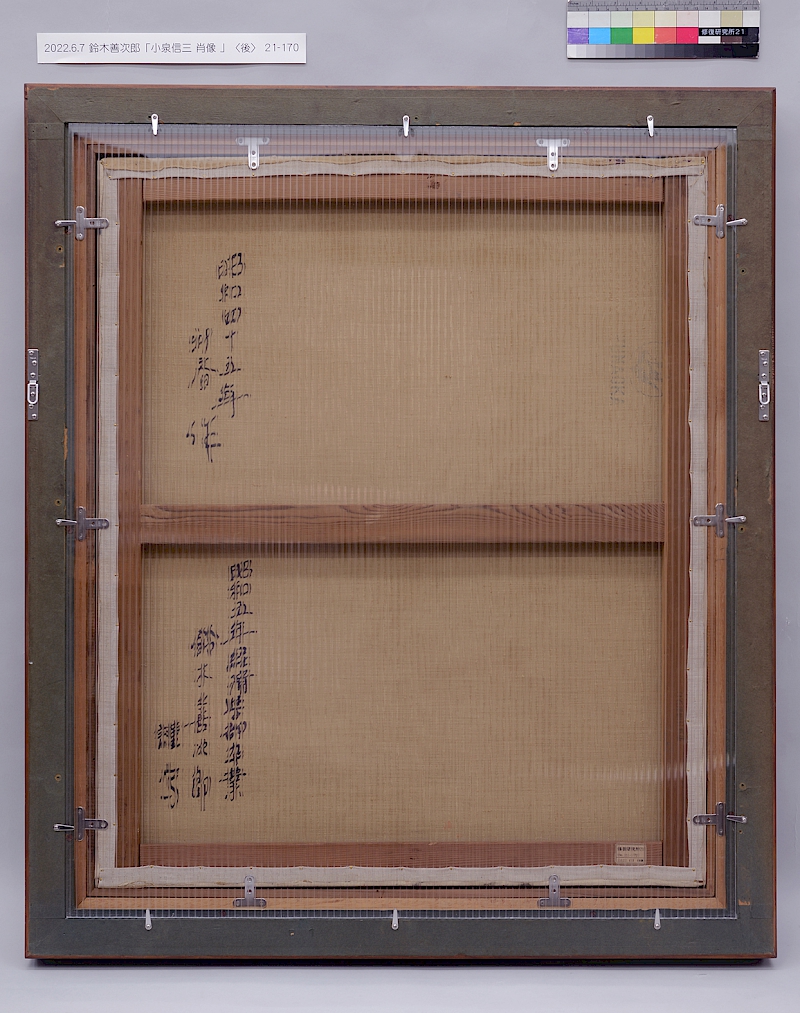 2022.6.7 鈴木善次郎「小泉信三 肖像 」〈後〉 21-170
修復研究所21
昭和四十五年
初春
作
昭和五年経済学部卒業
鈴木善次郎
謹写